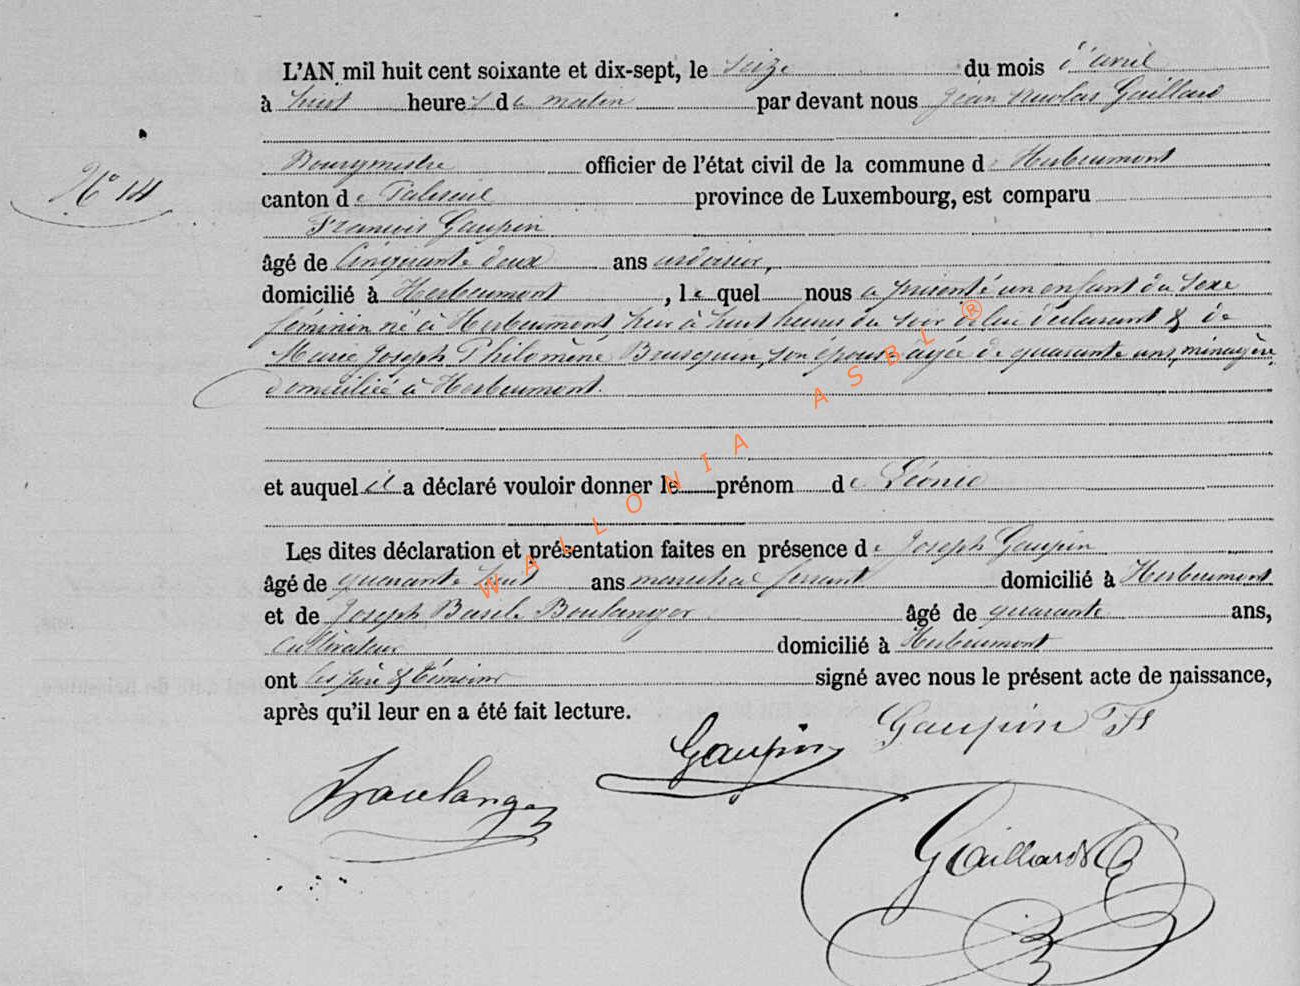 L'AN mil huit cent soixante et dix-sept, le seize du mois d'avril
à huit heures du matin par devant nous Jean Nicolas Gaillard
Bourgmestre officier de l'état civil de la commune de Herbeumont
N° 14
canton de Paliseul province de Luxembourg, est comparu
François Gaupin
âgé de Cinquante deux ans ardoisier,
domicilié à Herbeumont, lequel nous a présenté un enfant du sexe
féminin né à Herbeumont, hier à huit heures du soir de lui déclarant & de
Marie Joseph Philomène Bourguin, son épouse âgée de quarante ans, ménagère,
domiciliée à Herbeumont.
et auquel il a déclaré vouloir donner le prénom de Léonie
Les dites déclaration et présentation faites en présence de Joseph Gaupin
âgé de quarante huit ans maréchal ferrant domicilié à Herbeumont
et de Joseph Basile Boulanger âgé de quarante ans,
cultivateur domicilié à Herbeumont
ont les père & témoins signé avec nous le présent acte de naissance,
après qu'il leur en a été fait lecture.
Gaupin Fs
Gaupin
Boulanger
Gaillard
WALLONIA ASBL ®